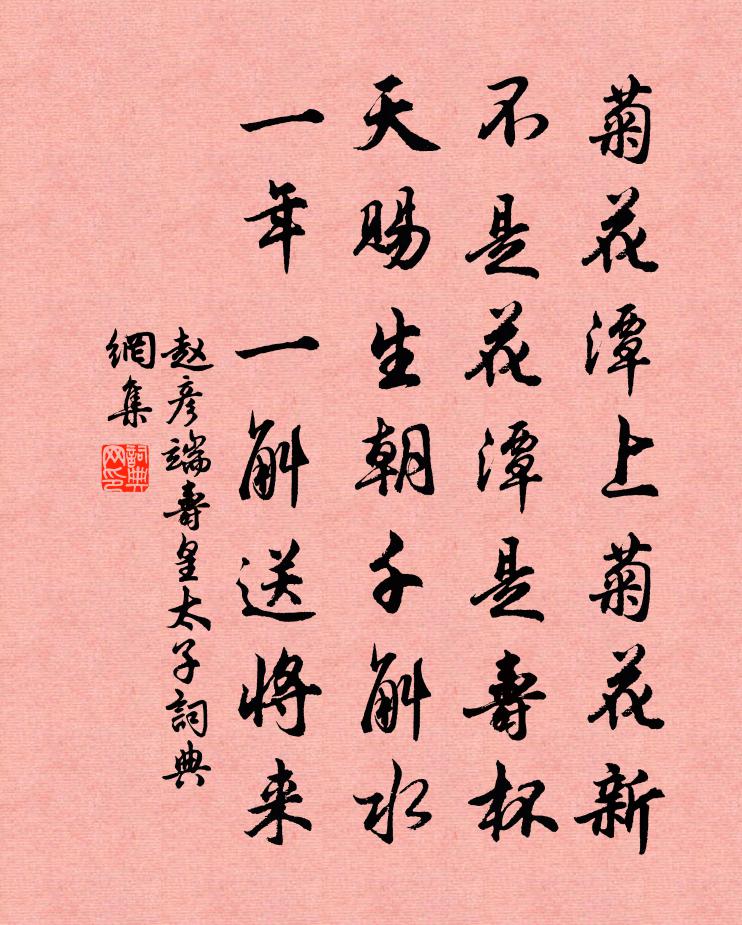 菊花潭上菊花新
不是花潭是壽杯
天賜生朝千斛水
一年一斛送將来
赵彦端壽皇太子詞典
網集
詞典网印